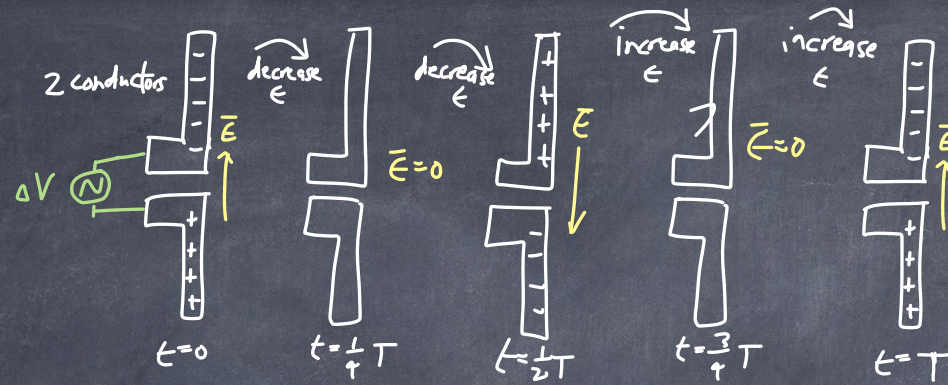 2 conductors
ΔV
- - - - -
+ + + +
E̅
t=0
decrease
ε
E̅=0
t=1/4 T
decrease
ε
+ + + +
- - - -
E̅
t=1/2 T
increase
ε
E̅=0
t=3/4 T
increase
ε
- - - - -
+ + + +
E̅
t=T